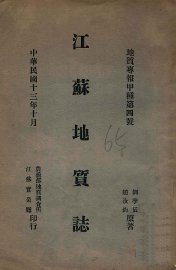 地質專報甲種第四號
江蘇地質誌
劉季辰
趙汝鈞
原著
中華民國十三年十月
農商部地質調查所
江蘇實業廳
印行
65